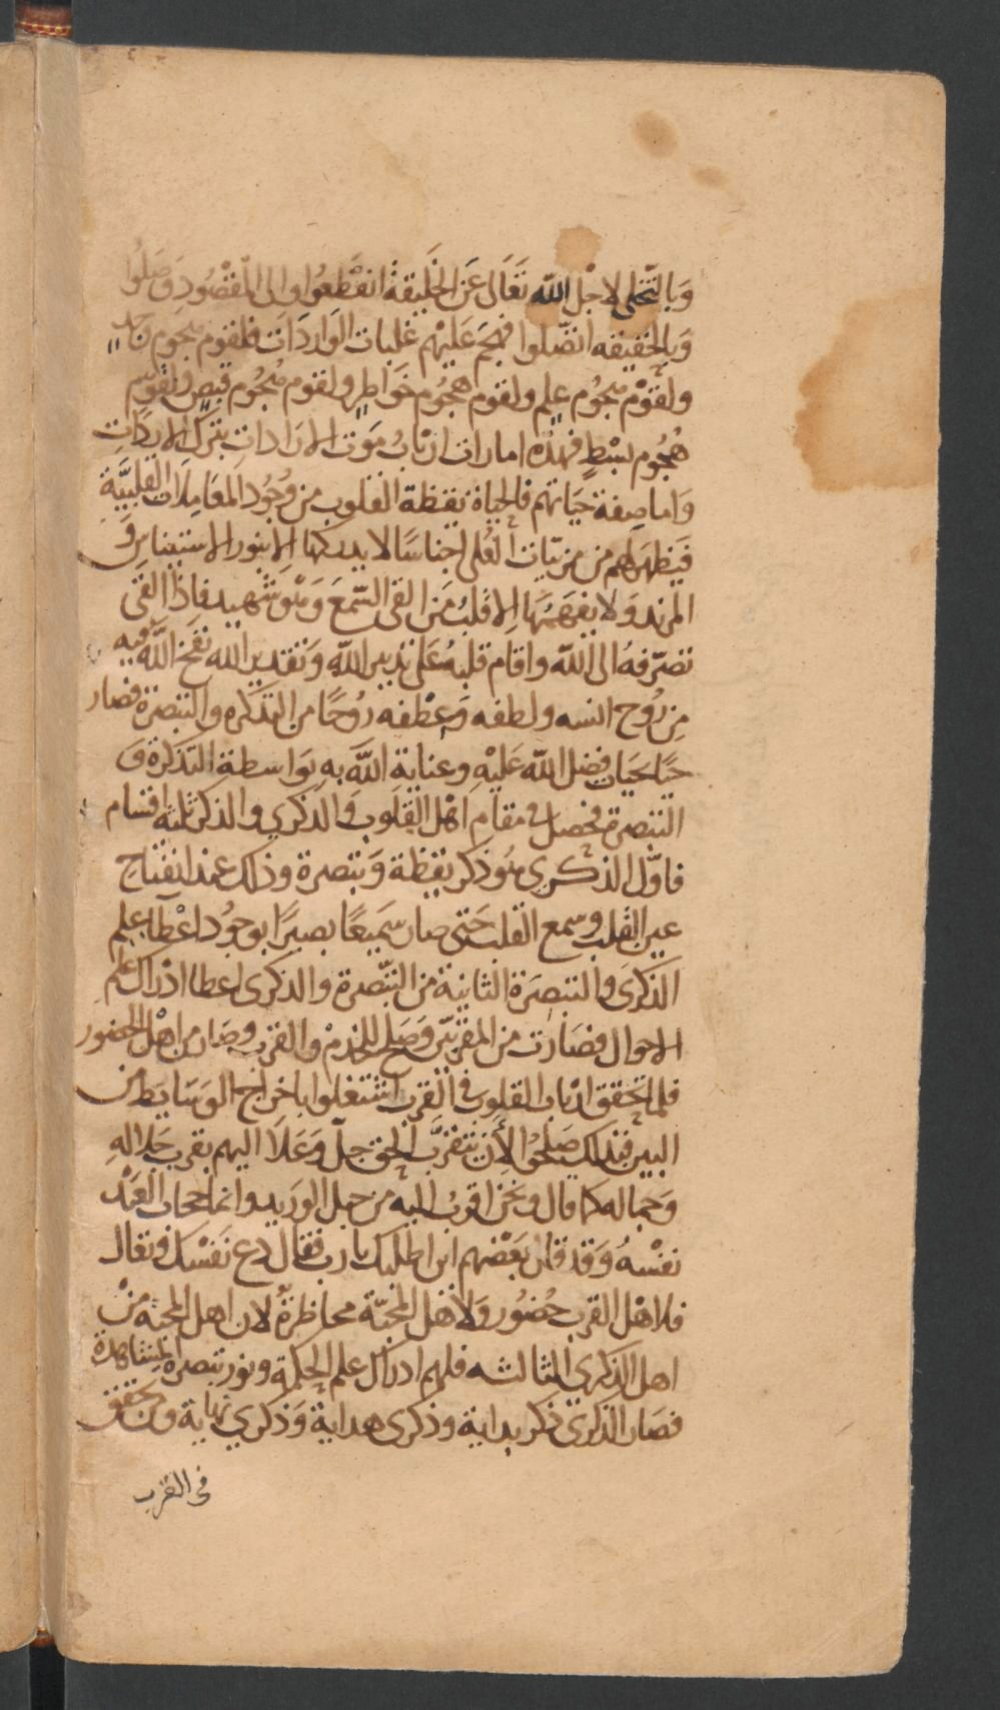 وَبالتَّخلى لاجْل الله تَعَالَى عَن الخَلِيقَة انقَطَعُوا والى المقْصُودِ وَصَلُوا
وَبالحقيقه اتصّلوا فهجَم عَليْهم غلبات الوَاردَات فلقوم هجوم وَجدٍ
ولقوْم هجُوم عِلمٍ ولقوم هجُوم خَوَاطِرٍ ولقوم هُجُوم قبضٍ ولقومٍ
هُجُوم بسْطٍ فهذه امارات ارْبابُ مَوَت الارَاداتِ بتركِ الارَادَاتِ
وَاما صِفة حيَاتهم فالحياة يقظة القلوب من وُجُود المعَامِلَات القلبيَّةِ
فيَظهَر لهم من مزيّات العُلى اجناسًا لا يدركها الا بنور الاستيناس وَ
المزيد وَلا يَفهمُهَا الا قلبُ مَن القى السّمعَ وَهْوَ شَهيد فاذا القى
تصَرّفهُ الى الله واقام قلبهُ عَلى تدبير اللهِ وَتقدير الله نفخ اللّه فيه
مِن رُوح انسه ولطفه وَعطفه رُوحًا من التذكره والتبصرة فصار
حيًا بحيَاة فضل الله عَليْهِ وعناية اللَّه به بوَاسطة التذكرة وَ
التبصرة فحصل في مقام اهْل القلوب وَالذكري والذكر ثلثه اقسام
فاوَّل الذكرى هُو ذكر يقظة وَتبصرة وذلك عند انفتاح
عين القلب وسمع القلب حَتى صار سَميعًا بصيرًا بوجُود اعْطا علم
الذكرَى والتبصرَة الثانية من التبّصرة والذكرى اعطا ادْراك علم
الاحوال فصَارت من المقربّين وَصَلح للخدمْ والقرب وصَار من اهْل الحضور
فلما تحقق ارْباب القلوب في القرب اشتغلوا باخراج الوسَايط من
البين فبذلك صَلحُوا لأن يتقرَّب الحق جلّ وَعَلَا اليهم بقرب جَلالهِ
وَجماله كما قال ونحن اقربُ اليه من حبل الوَريد وانما حجاب العَبْد
نفْسُهُ وَقد قال بَعْضهم اين اطلبك يا رب فقال دع نَفسْك وتعال
فلاهْل القرب حُضُور وَلاهْل المحبّة محاظرةٌ لان اهل المحبة منْ
اهل الذكرى الثالثه فلهم ادراك علم الحكمة ونور تبصرة المشاهدة
فصَار الذكري ذكر بداية وذكرى هداية وَذكري نهاية ومن تحقق
فى القرب